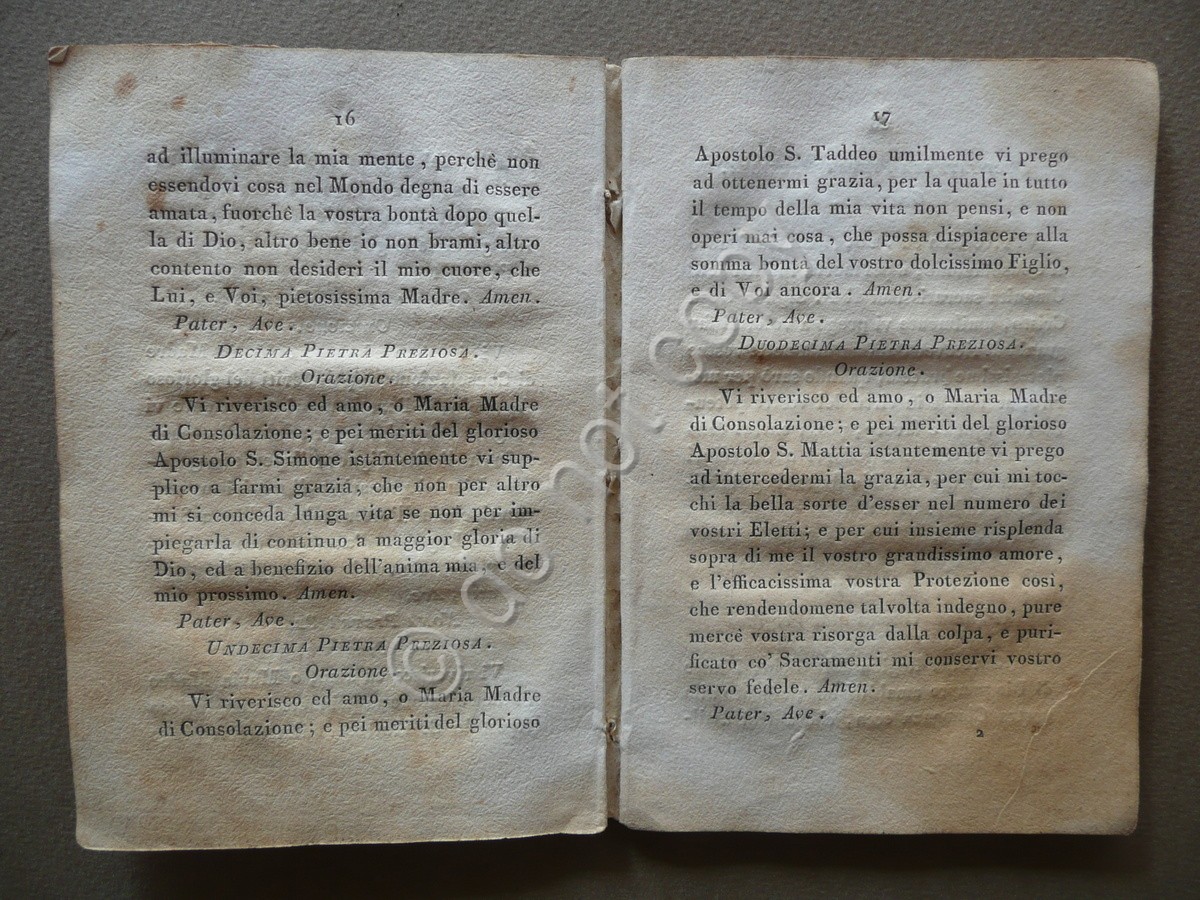 16
ad illuminare la mia mente, perchè non
essendovi cosa nel Mondo degna di essere
amata, fuorchè la vostra bontà dopo quel-
la di Dio, altro bene io non brami, altro
contento non desideri il mio cuore, che
Lui, e Voi, pietosissima Madre. Amen.
Pater, Ave.
DECIMA PIETRA PREZIOSA.
Orazione.
Vi riverisco ed amo, o Maria Madre
di Consolazione; e pei meriti del glorioso
Apostolo S. Simone istantemente vi sup-
plico a farmi grazia, che non per altro
mi si conceda lunga vita se non per im-
piegarla di continuo a maggior gloria di
Dio, ed a benefizio dell'anima mia, e del
mio prossimo. Amen.
Pater, Ave.
UNDECIMA PIETRA PREZIOSA.
Orazione.
Vi riverisco ed amo, o Maria Madre
di Consolazione; e pei meriti del glorioso
17
Apostolo S. Taddeo umilmente vi prego
ad ottenermi grazia, per la quale in tutto
il tempo della mia vita non pensi, e non
operi mai cosa, che possa dispiacere alla
somma bontà del vostro dolcissimo Figlio,
e di Voi ancora. Amen.
Pater, Ave.
DUODECIMA PIETRA PREZIOSA.
Orazione.
Vi riverisco ed amo, o Maria Madre
di Consolazione; e pei meriti del glorioso
Apostolo S. Mattia istantemente vi prego
ad intercedermi la grazia, per cui mi toc-
chi la bella sorte d'esser nel numero dei
vostri Eletti; e per cui insieme risplenda
sopra di me il vostro grandissimo amore,
e l'efficacissima vostra Protezione così,
che rendendomene talvolta indegno, pure
mercè vostra risorga dalla colpa, e puri-
ficato co' Sacramenti mi conservi vostro
servo fedele. Amen.
Pater, Ave.
2